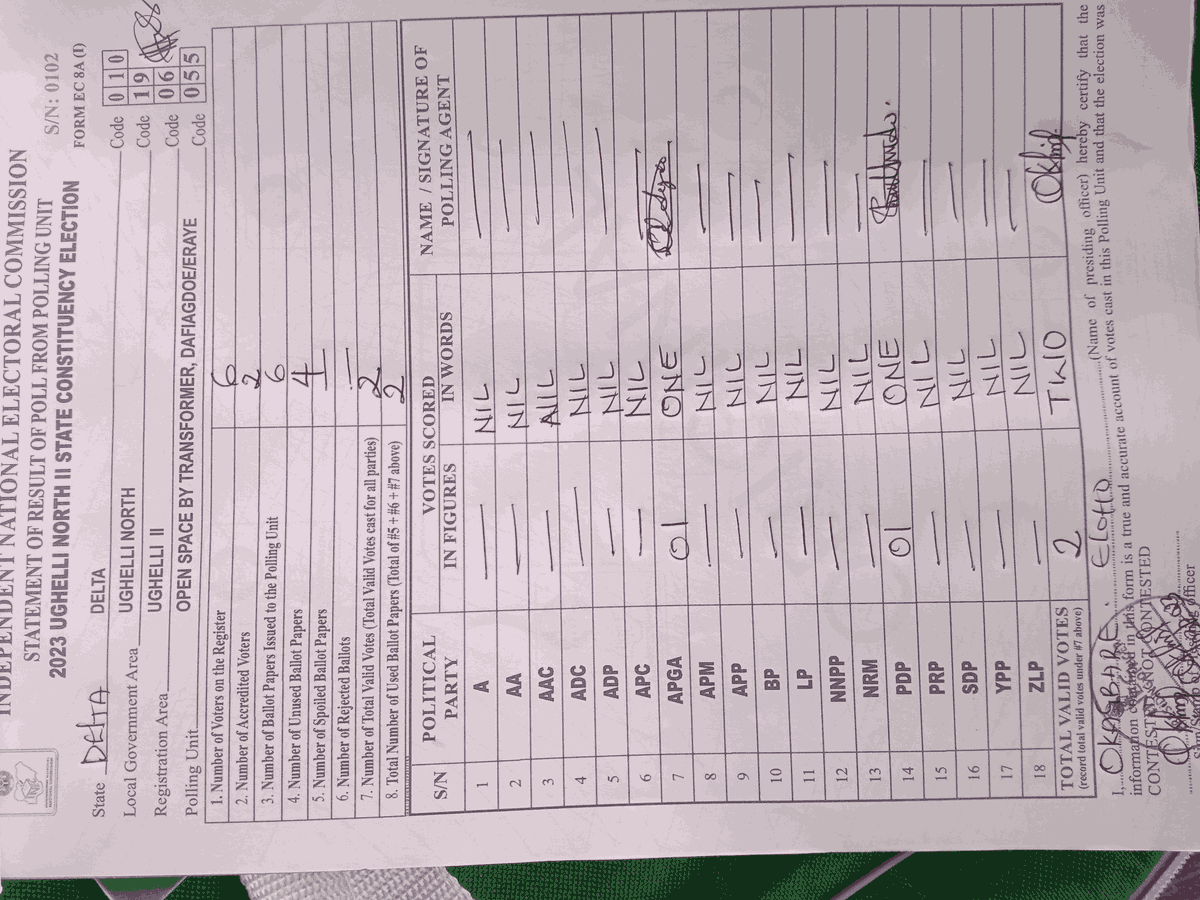 INDEPENDENT NATIONAL ELECTORAL COMMISSION
STATEMENT OF RESULT OF POLL FROM POLLING UNIT
S/N: 0102
2023 UGHELLI NORTH II STATE CONSTITUENCY ELECTION
FORM EC 8A (I)
State DELTA DELTA Code 0 1 0
Local Government Area UGHELLI NORTH Code 1 9
Registration Area UGHELLI II Code 0 6
Polling Unit OPEN SPACE BY TRANSFORMER, DAFIAGDOE/ERAYE Code 0 5 5
1. Number of Voters on the Register 6
2. Number of Accredited Voters 2
3. Number of Ballot Papers Issued to the Polling Unit 6
4. Number of Unused Ballot Papers 4
5. Number of Spoiled Ballot Papers —
6. Number of Rejected Ballots —
7. Number of Total Valid Votes (Total Valid Votes cast for all parties) 2
8. Total Number of Used Ballot Papers (Total of #5 + #6 + #7 above) 2
S/N POLITICAL PARTY VOTES SCORED NAME / SIGNATURE OF POLLING AGENT
IN FIGURES IN WORDS
1 A — NIL —
2 AA — NIL —
3 AAC — NIL —
4 ADC — NIL —
5 ADP — NIL —
6 APC — NIL —
7 APGA 01 ONE
8 APM — NIL —
9 APP — NIL —
10 BP — NIL —
11 LP — NIL —
12 NNPP — NIL —
13 NRM — NIL —
14 PDP 01 ONE
15 PRP — NIL —
16 SDP — NIL —
17 YPP — NIL —
18 ZLP — NIL
TOTAL VALID VOTES 2 TWO
(record total valid votes under #7 above)
I, OKAGBARE. ELOHO (Name of presiding officer) hereby certify that the
information contained in this form is a true and accurate account of votes cast in this Polling Unit and that the election was
CONTESTED/NOT CONTESTED
Officer